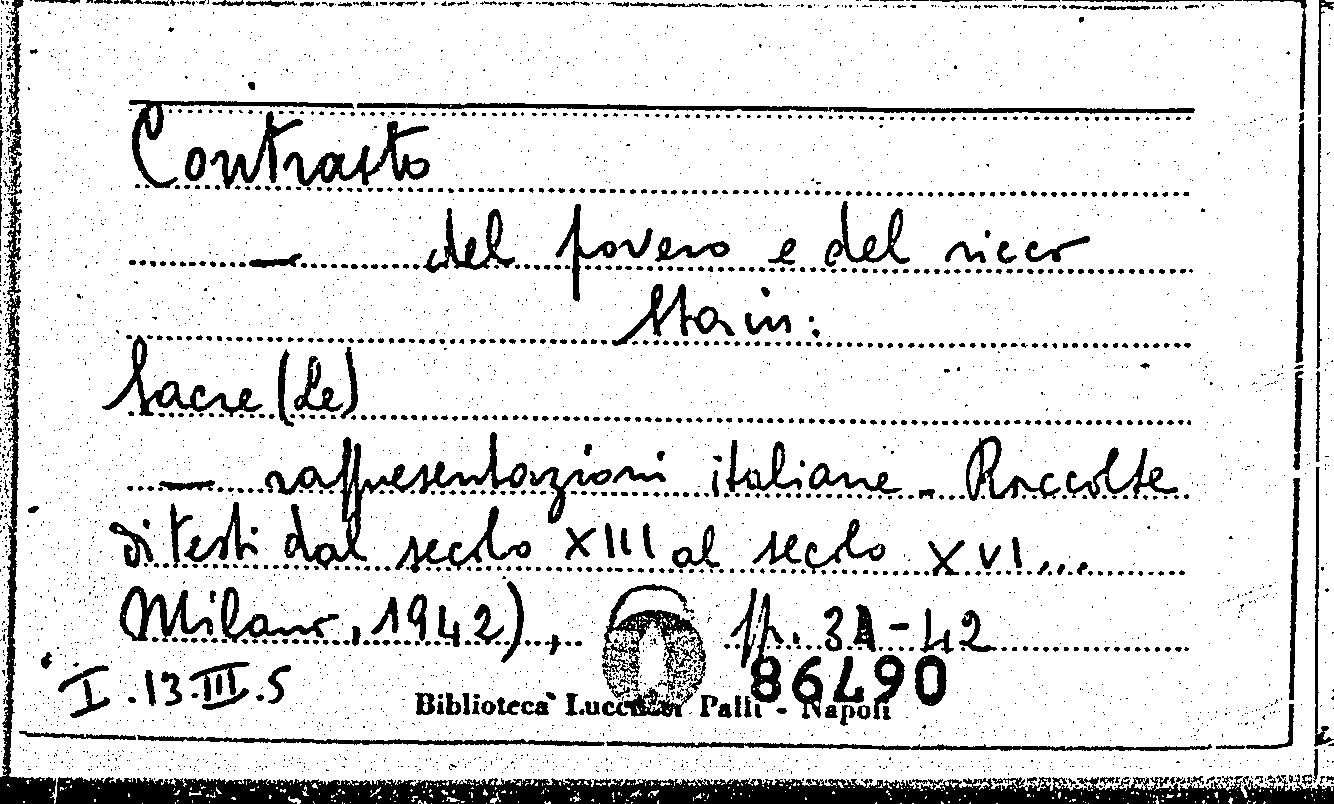 Contrasto
— del povero e del ricco
Sta in:
Sacre (Le)
— rappresentazioni italiane - Raccolte
di testi dal secolo XIII al secolo XVI...
Milano, 1942), pp. 31-42
I.13.III.5
86490
Biblioteca Lucchesi Palli - Napoli